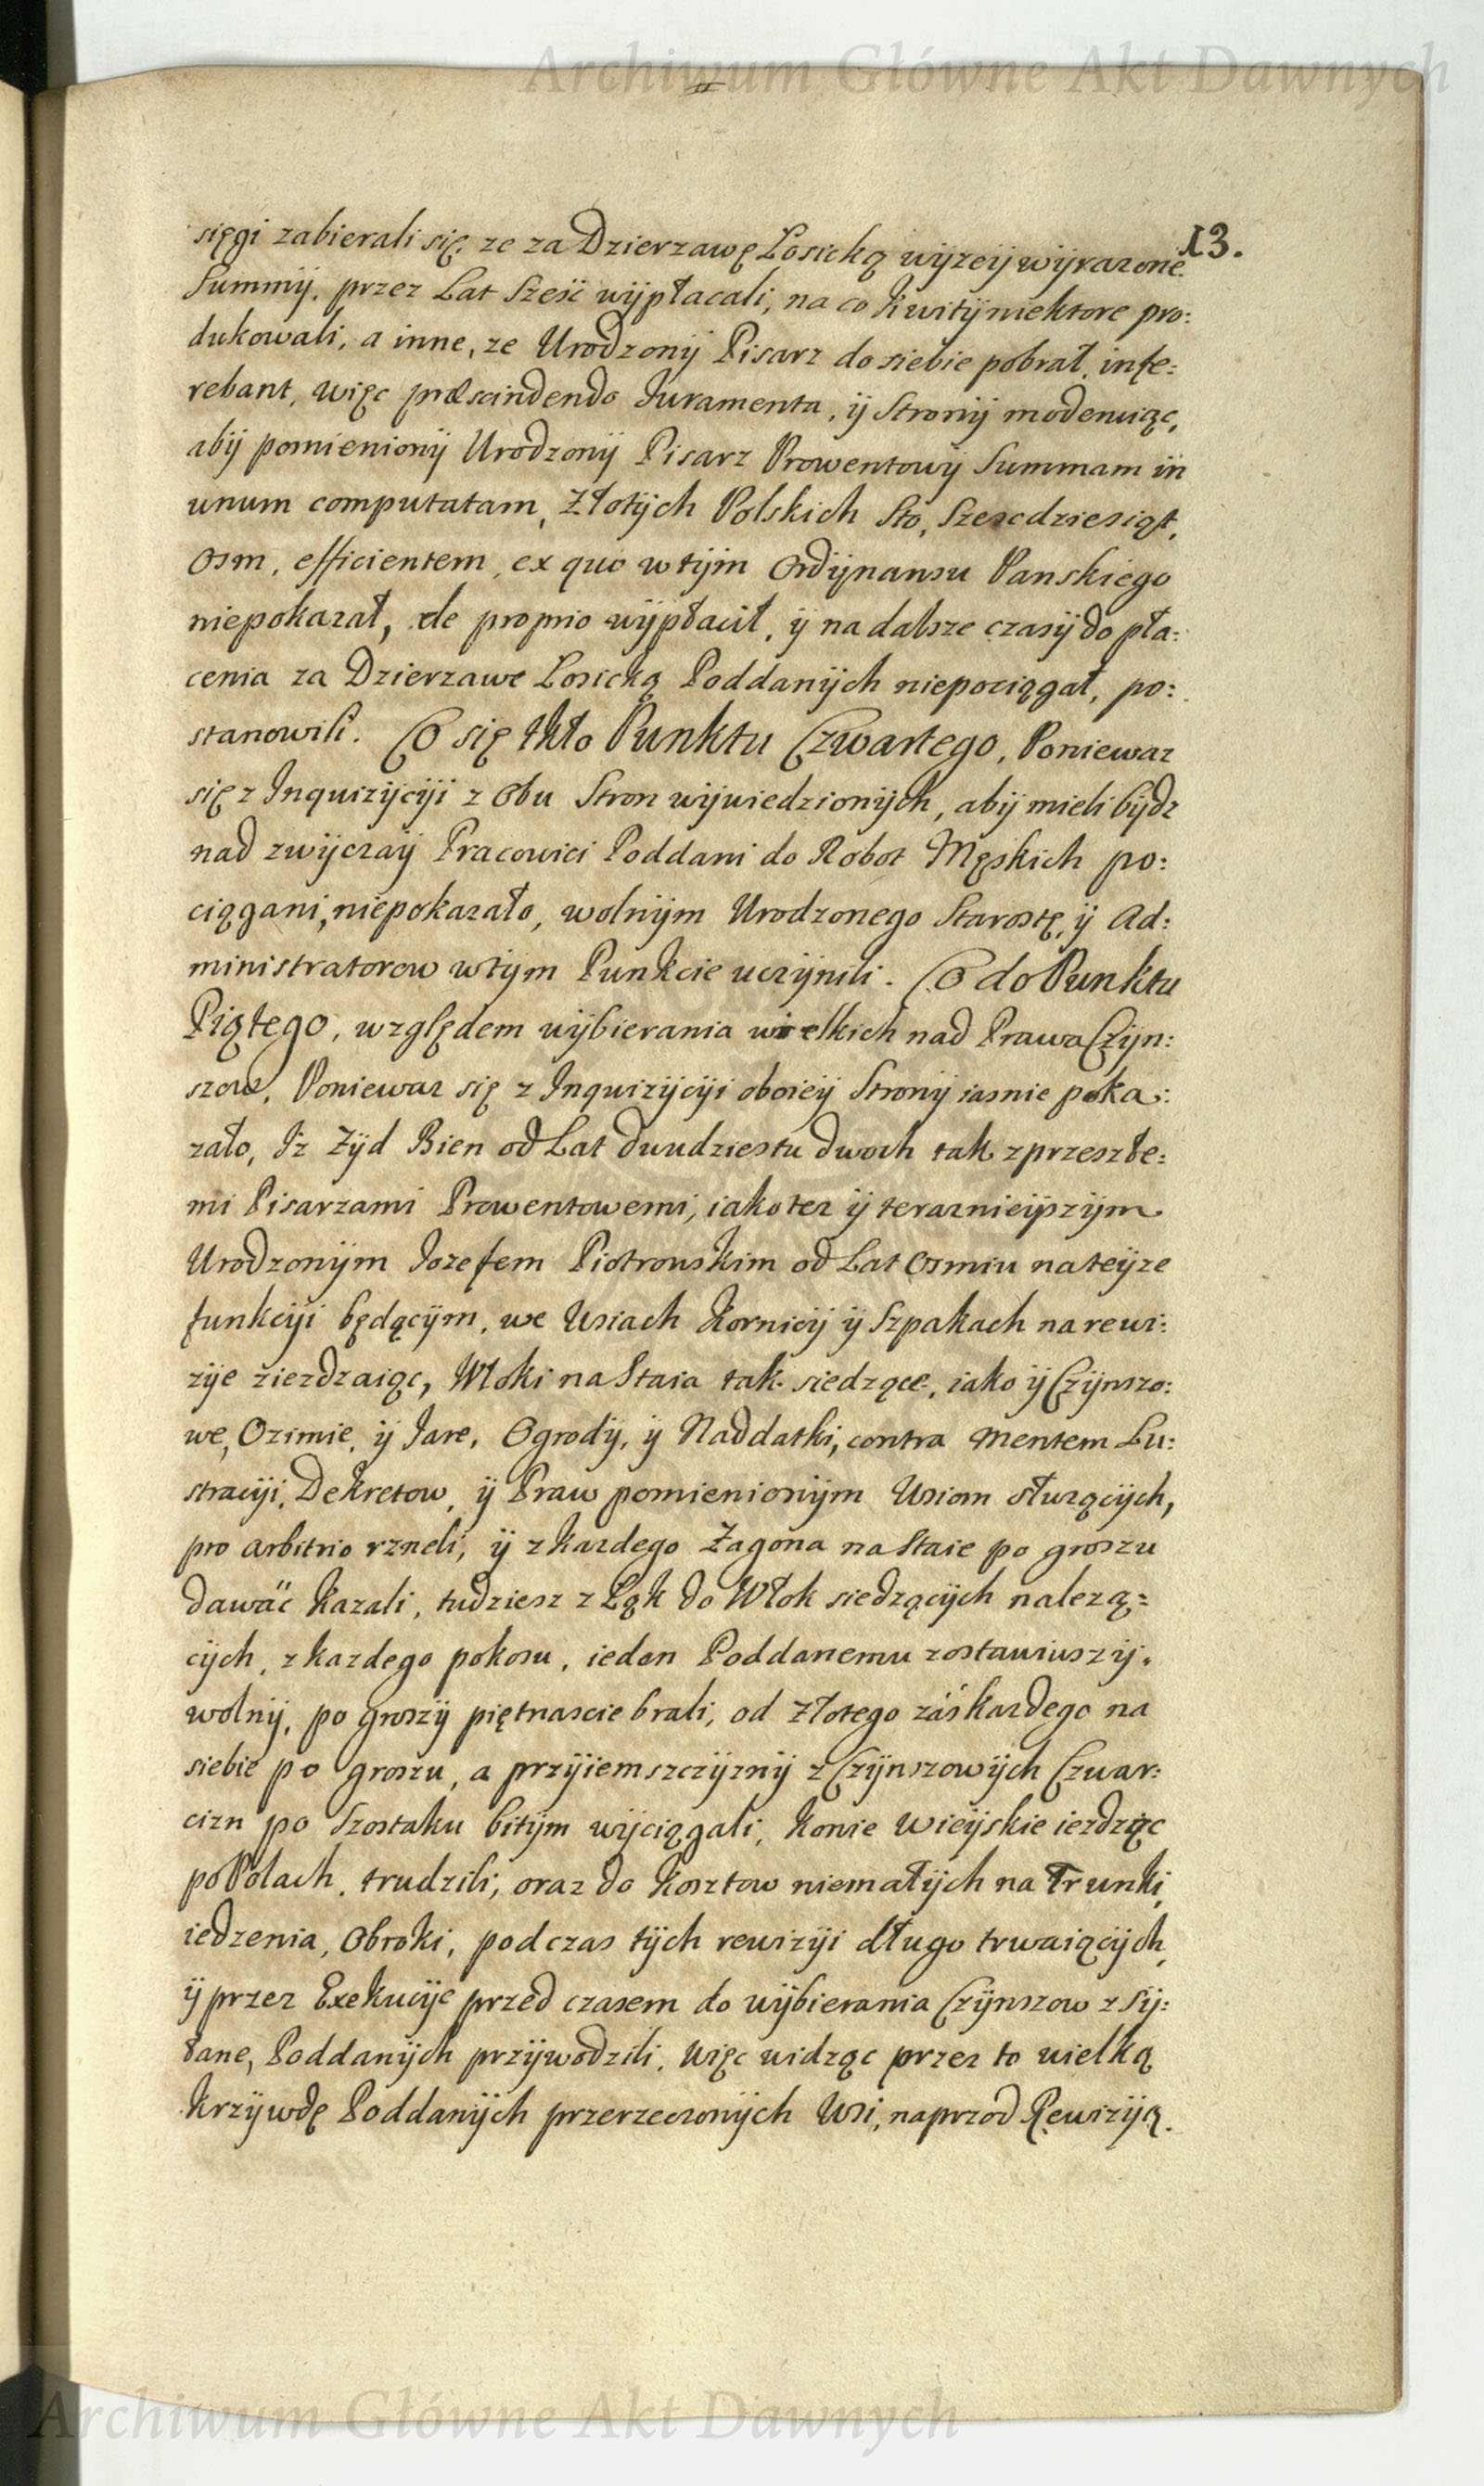 Archiwum Główne Akt Dawnych
13.
sięgi zabierali się, ze za Dzierzawę Łosicką wyzeÿ wÿrazone
Summÿ, przez Lat Sześć wÿpłacali, na co Kwitÿ niektore pro:
dukowali, a inne, ze Urodzonÿ Pisarz do siebie pobrał, infe:
rebant, więc præscindendo Juramenta, ÿ Stronÿ moderuiąc,
abÿ pomienionÿ Urodzonÿ Pisarz Prowentowÿ Summam in
unum computatam, Złotÿch Polskich Sto, Szescdziesiąt,
Osm, efficientem, ex quo w tÿm Ordÿnansu Panskiego
niepokazał, de proprio wÿpłacił, ÿ na dalsze czasÿ do pła:
cenia za Dzierzawe Łosicką Poddanÿch niepociągał, po:
stanowili. Co się tkło Punktu Czwartego, Poniewaz
się z Inquizÿcÿi z Obu Stron wÿwiedzionÿch, abÿ mieli bÿdz
nad zwÿczaÿ Pracowici Poddani do Robot Męskich po:
ciągani, niepokazało, wolnÿm Urodzonego Starostę, ÿ Ad:
ministratorow w tÿm Punkcie uczÿnili. Co do Punktu
Piątego, względem wÿbierania wielkich nad Prawa Czÿn:
szow, Poniewaz się z Inquizÿcÿi oboieÿ Stronÿ iasnie poka:
zało, Iż Zÿd Bien od Lat dwudziestu dwoch tak z przeszłe:
mi Pisarzami Prowentowemi, iako tez ÿ teraznieÿszÿm
Urodzonÿm Jozefem Piotrowskim od Lat Osmiu na teÿze
funkcÿi będącÿm, we Wsiach Kornicÿ ÿ Szpakach na rewi:
zÿe ziezdzaiąc, Włoki na Staia tak siedzące, iako ÿ Czÿnszo:
we, Ozimie, ÿ Jare, Ogrodÿ, ÿ Naddatki, contra mentem Lu:
stracÿi, Dekretow, ÿ Praw pomienionÿm Wsiom słuzącÿch,
pro arbitrio rzneli, ÿ z kazdego Zagona na Staie po groszu
dawać kazali, tudziesz z Łąk do Włok siedzącÿch nalezą:
cÿch, z kazdego pokosu, ieden Poddanemu zostawiwszÿ
wolnÿ, po groszÿ piętnascie brali, od złotego záś kazdego na
siebie po groszu, a przÿiemszczÿznÿ z Czÿnszowÿch Czwar:
cizn po Szostaku bitÿm wÿciągali, Konie Wieÿskie iezdząc
po Polach, trudzili, oraz do Kosztow niemałÿch na Trunki,
iedzenia, Obroki, podczas tÿch rewizÿi długo trwaiącÿch,
ÿ przez Exekucÿe przed czasem do wÿbierania Czÿnszow z sÿ:
łane, Poddanÿch przÿwodzili, Więc widząc przez to wielką
Krzÿwdę Poddanÿch przerzeczonÿch Wsi, naprzod Rewizÿą.
Archiwum Główne Akt Dawnych